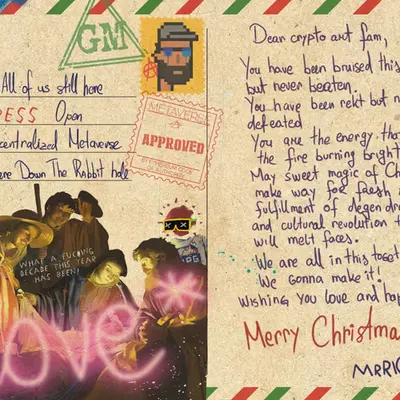 GM
All of us still here
RESS Open
centralized Metaverse
ere Down The Rabbit hole
METAVERSE
APPROVED
WHAT A FUCKING
DECADE THIS YEAR
HAS BEEN!
love*
Dear crypto art fam,
You have been bruised this
but never beaten.
You have been rekt but n
defeated
You are the energy tha
the fire burning bright
May sweet magic of Ch
make way for fresh a
fulfillment of degen dre
and cultural revolution t
will melt faces.
We are all in this toget
We gonna make it!
Wishing you love and hap
Merry Christma
MRRK